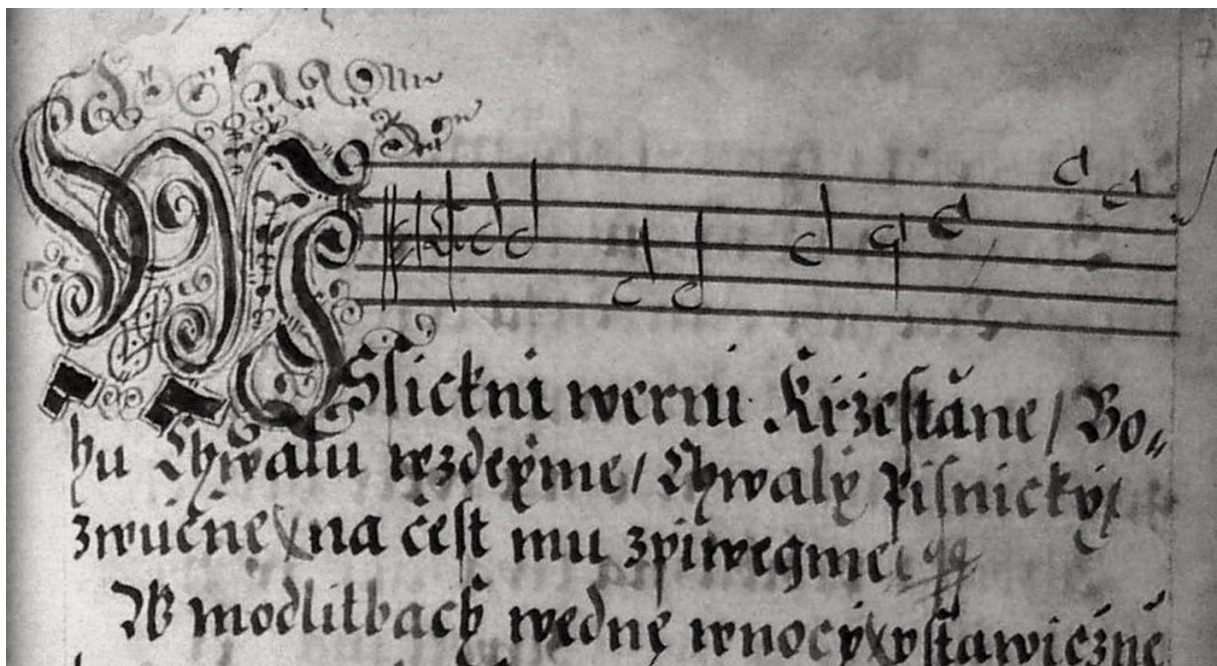 WSsickni werni Kržestǎne / Bo⸗
hu Chwalu wzdeyme / Chwaly Pisnicky
zwučne na čest mu zpiwegme
W modlitbach wedne wnocy vstawiczně